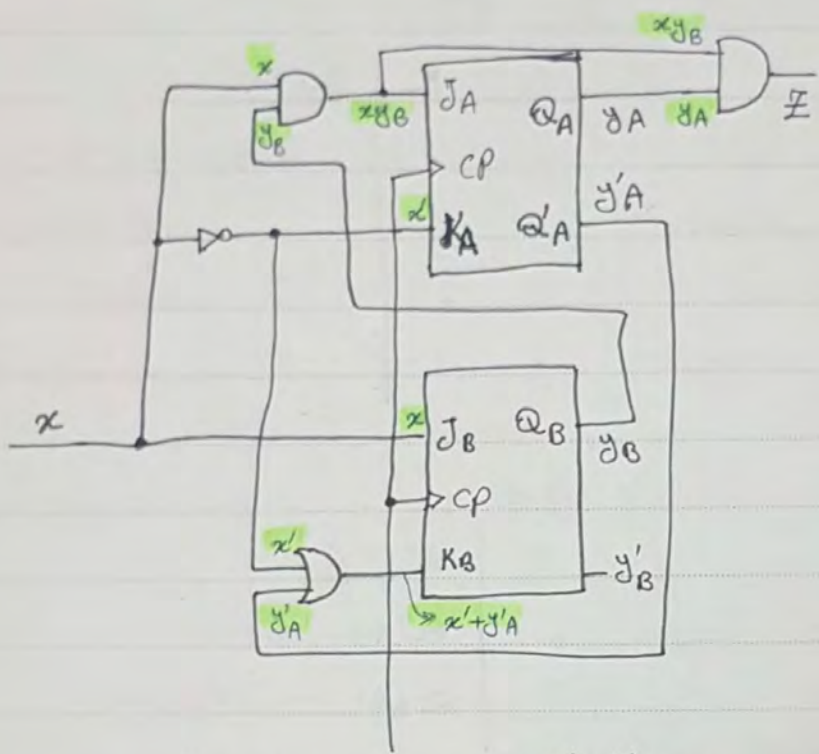 x
xy_B
y_B
xy_B
J_A
Q_A
y_A
y_A
Z
CP
x'
K_A
Q'_A
y'_A
x
x
J_B
Q_B
y_B
CP
x'
K_B
y'_B
y'_A
x'+y'_A